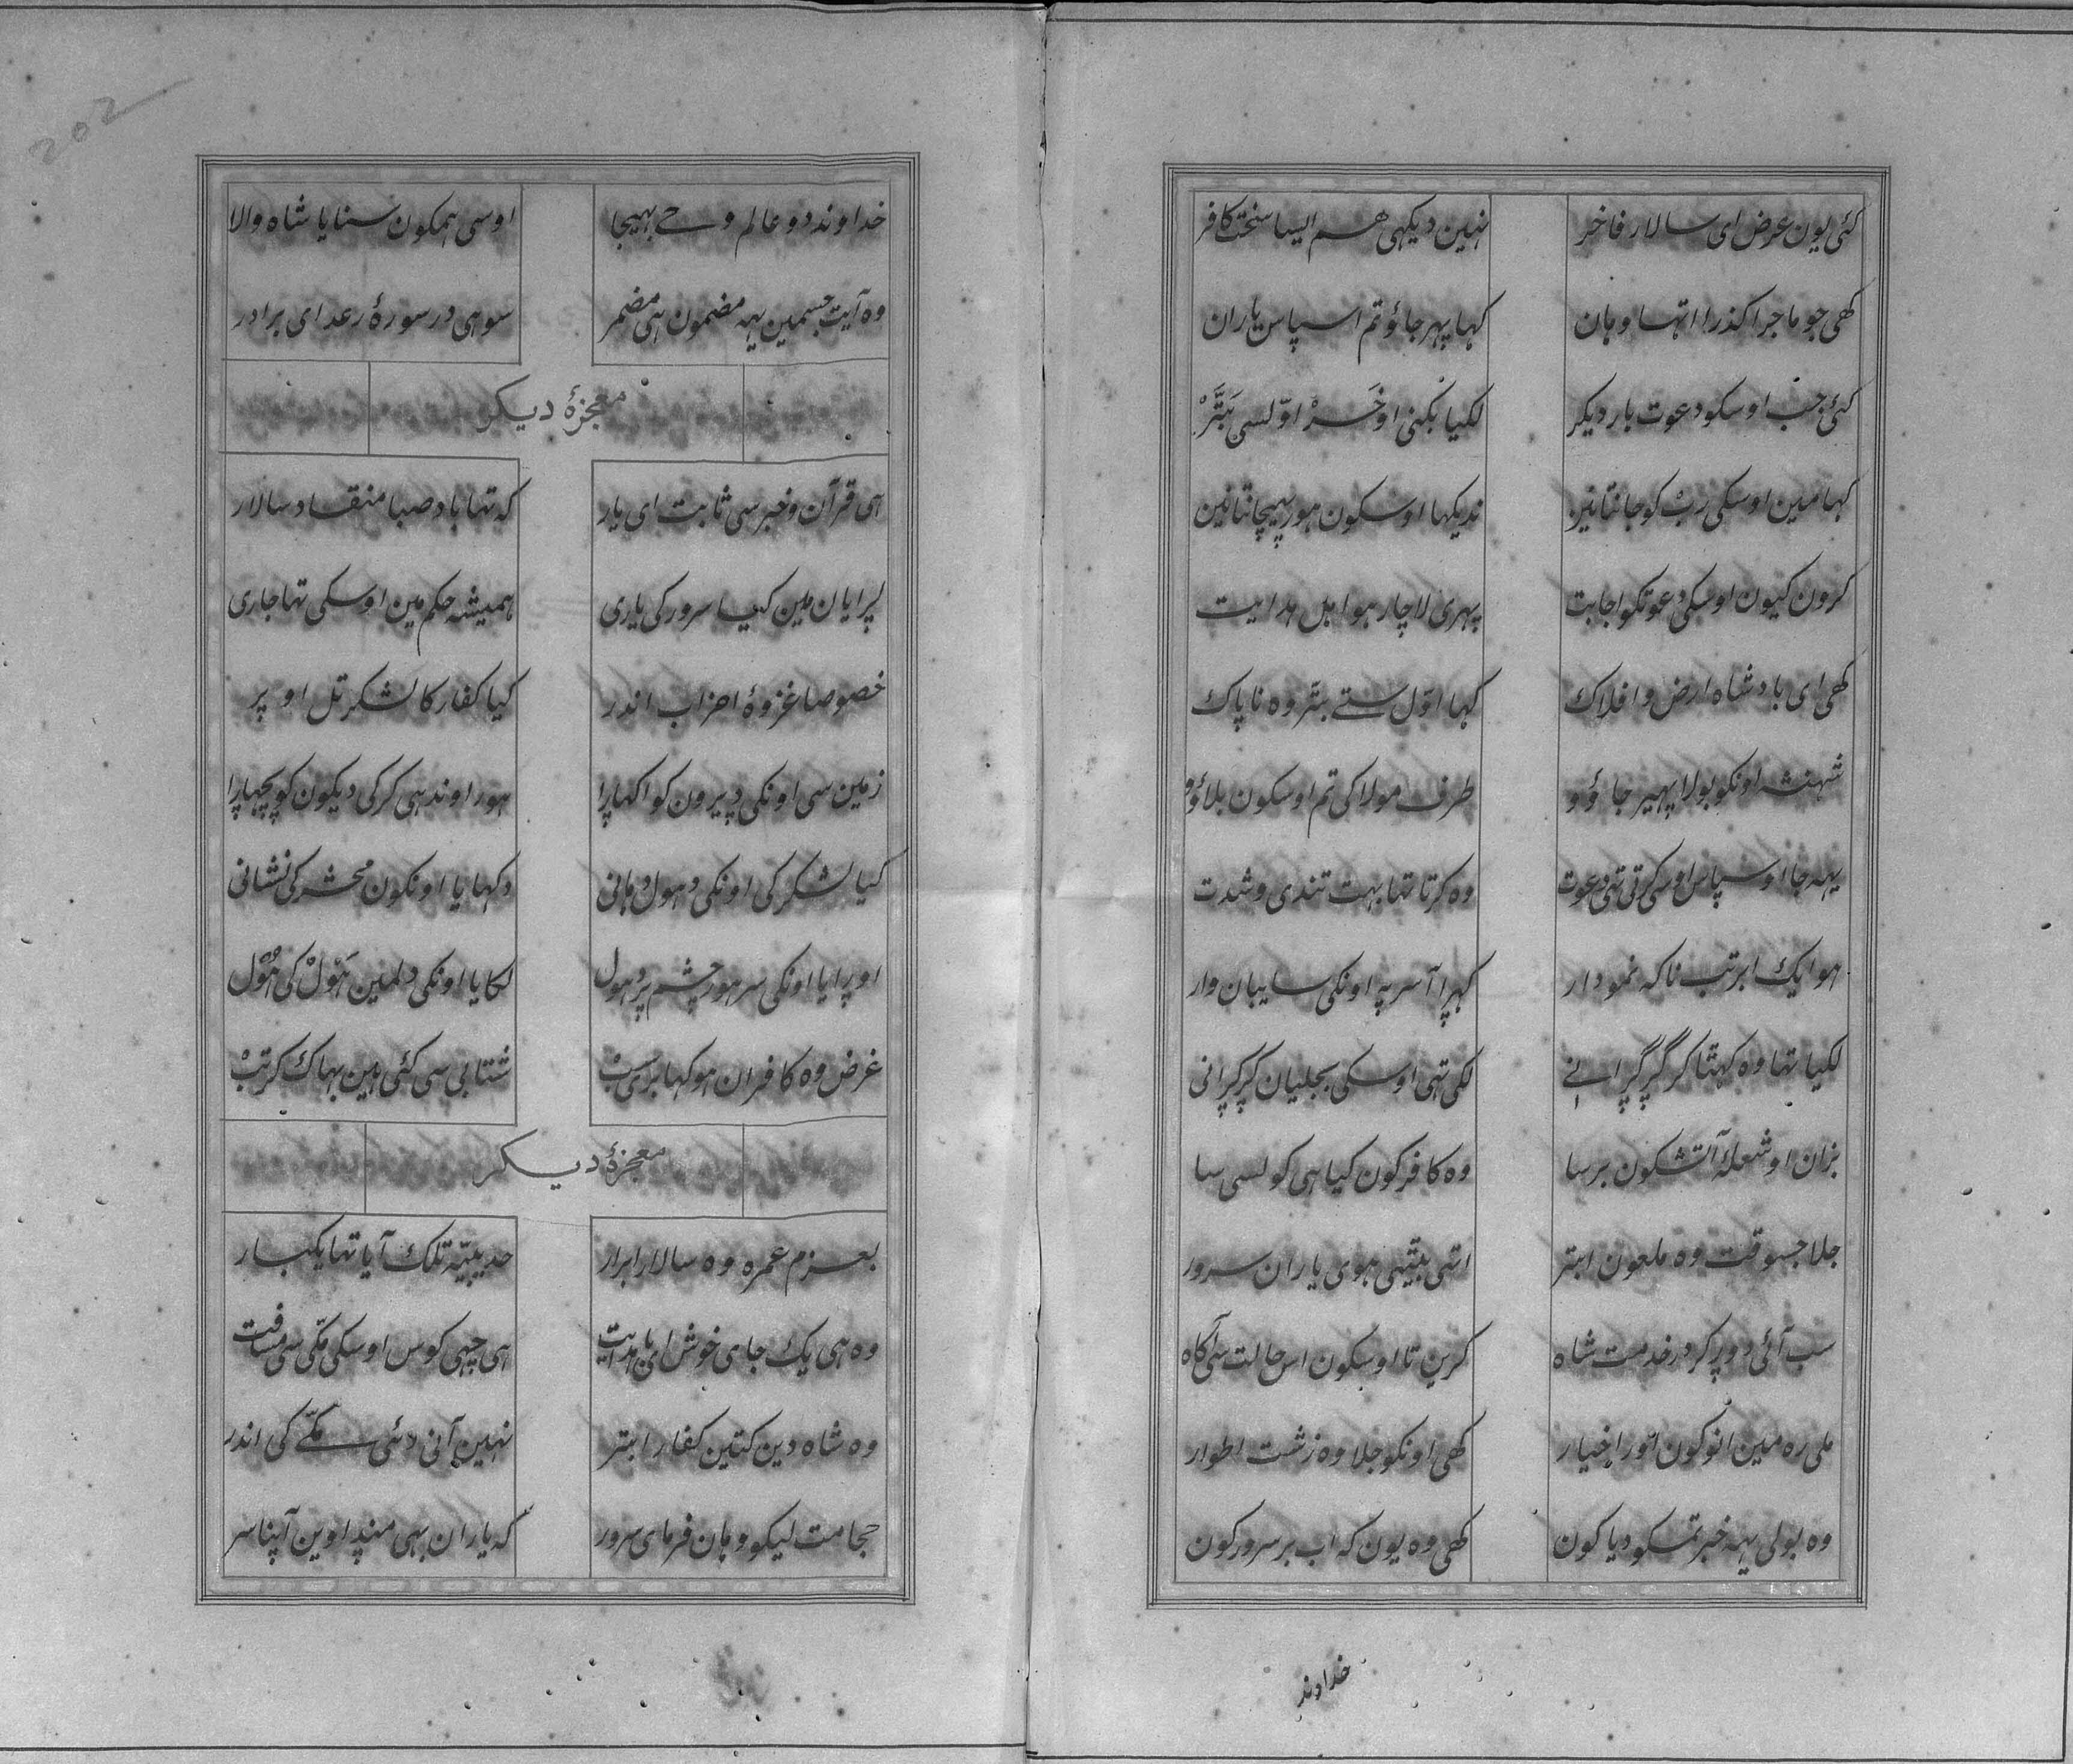 کئی یون عرض ای سالار فاخر نہین دیکہی هم ایسا سخت کافر
کہی جو ماجرا کذرا اتہا وہان کہا پہر جاؤ تم اسپاس یاران
کئی جب اوسکو دعوت بار دیکر لکیا بکنی او خر اوّلسی بتّر
کہا مین اوسکی رب کو جانتا نین ندیکہا اوسکون ہور پہچانتا نین
کرون کیون اوسکی دعوتکو اجابت پہری لاچار ہو اہل ہدایت
کہی ای بادشاہ ارض و افلاک کہا اوّل ستے بتّر وہ ناپاک
شہنشہ اونکو بولا پہیر جاؤو طرف مولا کی تم اوسکون بلاؤو
یہہ جا اوسپاس اوسکی کرتی تہی دعوت وہ کرتا تہا بہت تندی و شدت
ہوا یک ابر تب ناکہ نمودار کہڑا آ سر پہ اونکی سایبان وار
لکیا تہا وہ کہتا کر گڑگڑانے لکی تہی اوسکی بجلیان کڑکڑانی
بزان او شعلۂ آتشکون برسا وہ کافر کون کیا ہی کولسی سا
جلا جسوقت وہ ملعون ابتر اتہی بیٹہی ہوی یاران سرور
سب آئی دوڑ کر در خدمت شاہ کرین تا اوسکون اس حالت سی آکاہ
ملی رہ مین انوکون اور اخیار کہی اونکو جلا وہ زشت اطوار
وہ بولی یہہ خبر تمسکو دیا کون کہی وہ یون کہ اب بر سرور کون
خداوند
202
خداوند دو عالم وحے بہیجا اوسی ہمکون سنایا شاہ والا
وہ آیت جسمین یہہ مضمون ہی مضمر سو ہی در سورۂ رعد ای برادر
معجزۂ دیکر
ہی قرآن و خبر سی ثابت ای یار کہ تہا باد صبا منقاد سالار
لڑایان مین کیا سرور کی یاری ہمیشہ حکم مین اوسکی تہا جاری
خصوصا غزوۂ احزاب اندر کیا کفار کا لشکر تل اوپر
زمین سی اونکی ڈیرون کو اکہاڑا ہور اوندہی کرکی دیکون کو پچہاڑا
کیا لشکر کی اونکی دہول دہانی دکہایا اونکون محشر کی نشانی
اوڑایا اونکی سر ہور چشم پر دہول لکایا اونکی دلمین ہول کی ہول
غرض وہ کافران ہو کہابری سب شتابی سی کئی ہین بہاک کر تب
معجزۂ دیکر
بعزم عمرہ وہ سالار ابرار حدیبیّہ تلک آیا تہا یکبار
وہ ہی یک جای خوش ای باہدایت ہی چہی کوس اوسکی مکّی سی مسافت
وہ شاہ دین کتین کفار ابتر نہین آنی دئی مکّے کی اندر
حجامت لیکو وہان فرمای سرور کہ یاران بہی منڈاوین آپنا سر